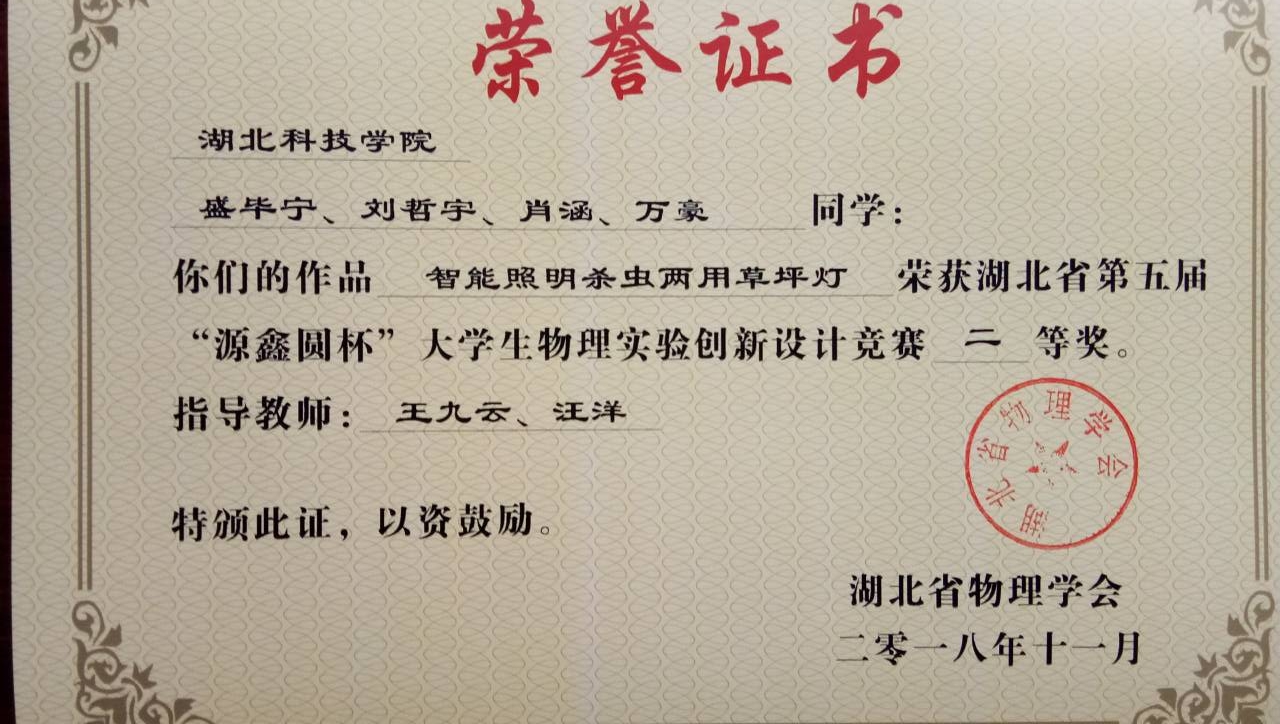 荣誉证书
湖北科技学院
盛毕宁、刘哲宇、肖涵、万豪 同学：
你们的作品 智能照明杀虫两用草坪灯 荣获湖北省第五届
“源鑫圆杯”大学生物理实验创新设计竞赛 二 等奖。
指导教师： 王九云、汪洋
特颁此证，以资鼓励。
湖北省物理学会
湖北省物理学会
二零一八年十一月